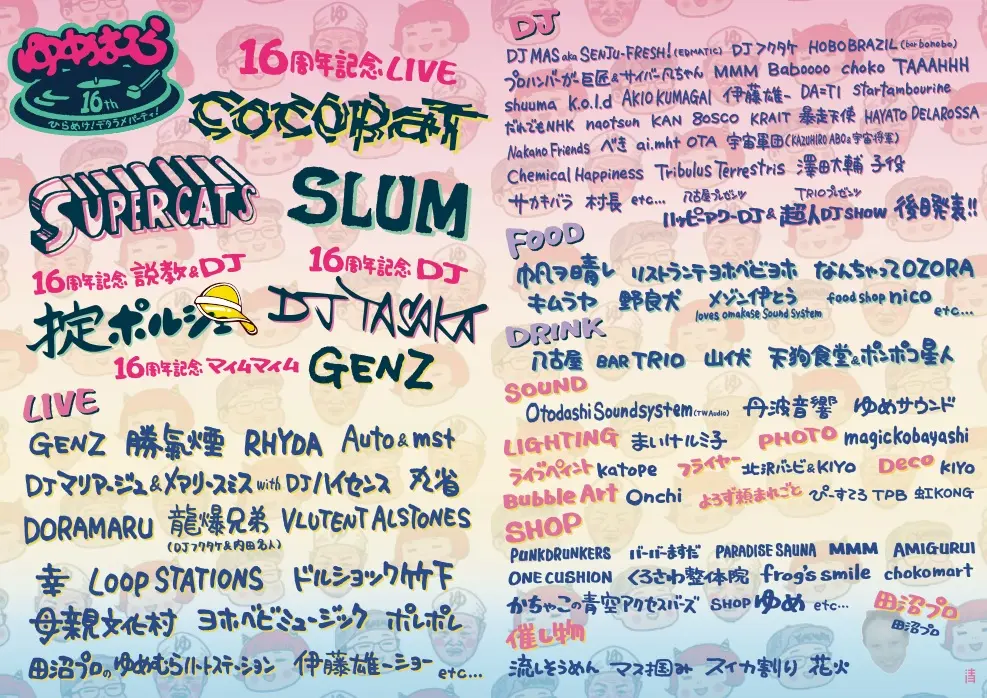 ゆめむら
16th
ひらめけ!デタラメパーティ!
16周年記念 LIVE
COCOBAT
SUPERCATS
SLUM
16周年記念 説教&DJ
掟ポルシェ
16周年記念 DJ
DJ TASAKA
16周年記念 マイムマイム
GENZ
LIVE
GENZ 勝氣煙 RHYDA Auto&mst
DJマリアージュ&メアリースミス with DJハイセンス 丸省
DORAMARU 龍爆兄弟 VLUTENT ALSTONES
(DJフクタケ&内田名人)
幸 LOOP STATIONS ドルショック竹下
母親文化村 ヨホベビミュージック ポレポレ
田沼プロのゆめむらハートステーション 伊藤雄一ショー etc...
DJ
DJ MAS aka SENJU-FRESH! (EDMATIC) DJフクタケ HOBOBRAZIL (bar bonobo)
プロハンバーガー巨匠&サイバー凡ちゃん MMM Baboooo choko TAAAHHH
shuuma K.o.l.d AKIO KUMAGAI 伊藤雄一 DA=TI startambourine
だれでもNHK naotsun KAN 8OSCO KRAIT 暴走天使 HAYATO DELAROSSA
Nakano Friends べき ai.mht OTA 宇宙軍団(KAZUHIRO ABO&宇宙将軍)
Chemical Happiness Tribulus Terrestris 澤田大輔 子役
サカキバラ 村長 etc...
八古屋プレゼンツ
ハッピーアワーDJ&
TRIOプレゼンツ
超人DJ SHOW 後日発表!!
FOOD
帆ヲ晴レ リストランテヨホベビヨホ なんちゃってOZORA
キムラヤ 野良犬 メゾン伊とう food shop nico
loves omakase Sound System etc...
DRINK
八古屋 BAR TRIO 山伏 天狗食堂&ポンポコ星人
SOUND
Otodashi Soundsystem (TW Audio) 丹波音響 ゆめサウンド
LIGHTING まいけルミ子 PHOTO magickobayashi
ライブペイント katope フライヤー 北沢バンビ&KIYO Deco KIYO
Bubble Art Onchi よろず頼まれごと ぴーすてろ TPB 虹KONG
SHOP
PUNKDRUNKERS バーバーますだ PARADISE SAUNA MMM AMIGURUI
ONE CUSHION くろさわ整体院 frog's smile chokomart
かちゃこの青空アクセスバーズ SHOP ゆめ etc...
田沼プロ
田沼プロ
催し物
流しそうめん マス掴み スイカ割り 花火